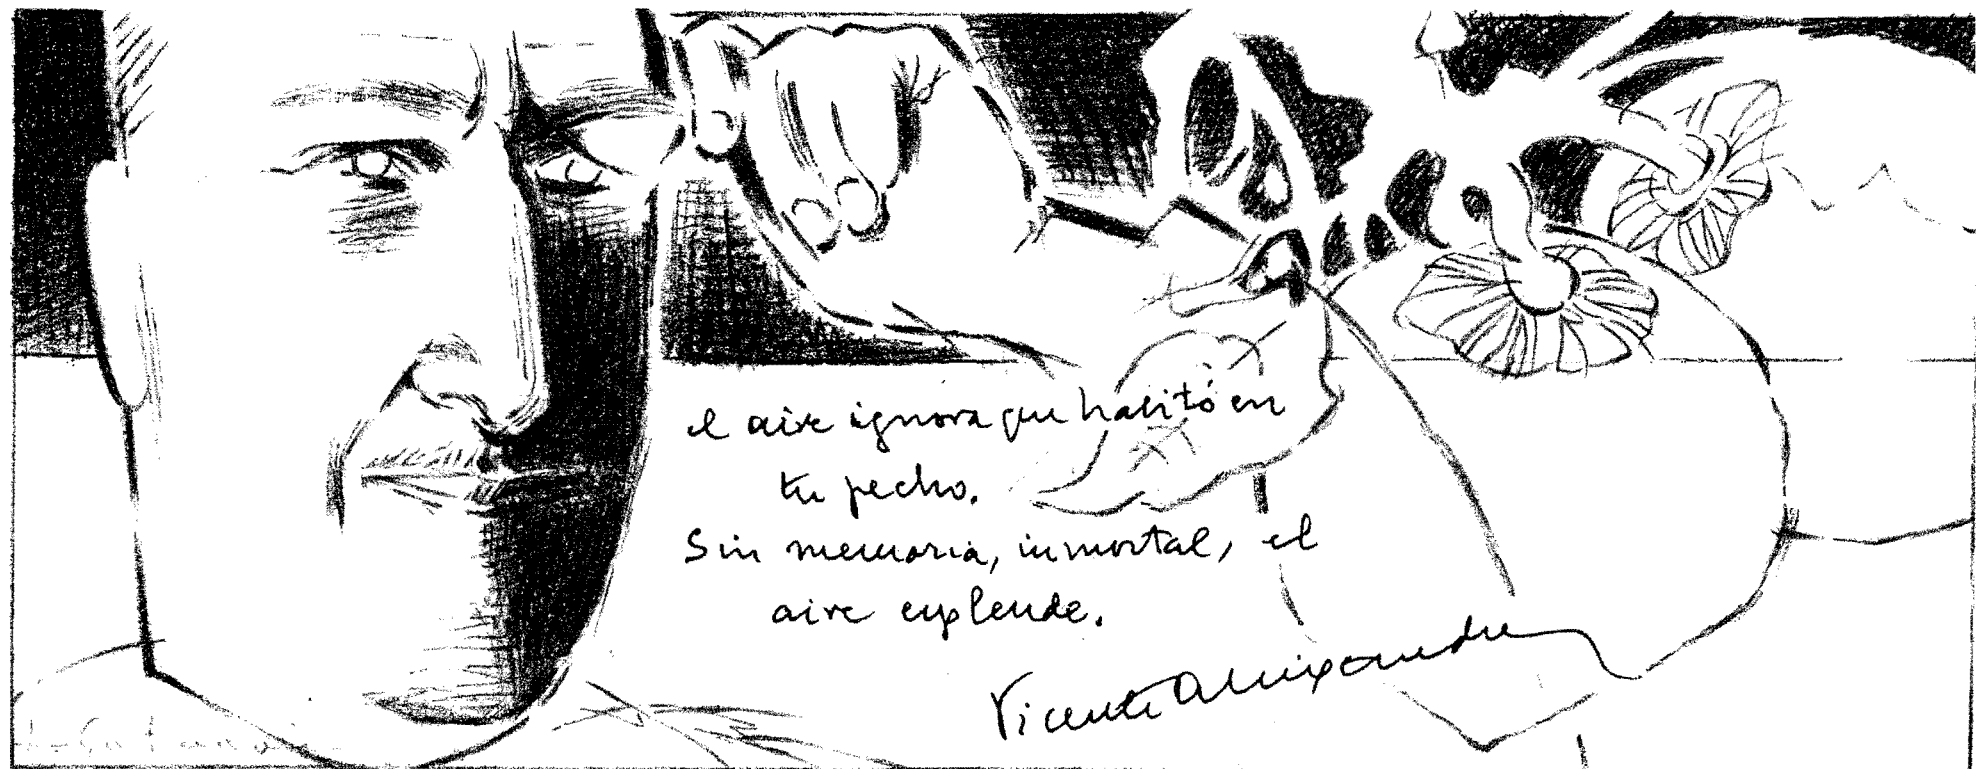 el aire ignora que habitó en
tu pecho.
Sin memoria, inmortal, el
aire esplende.
Vicente Aleixandre